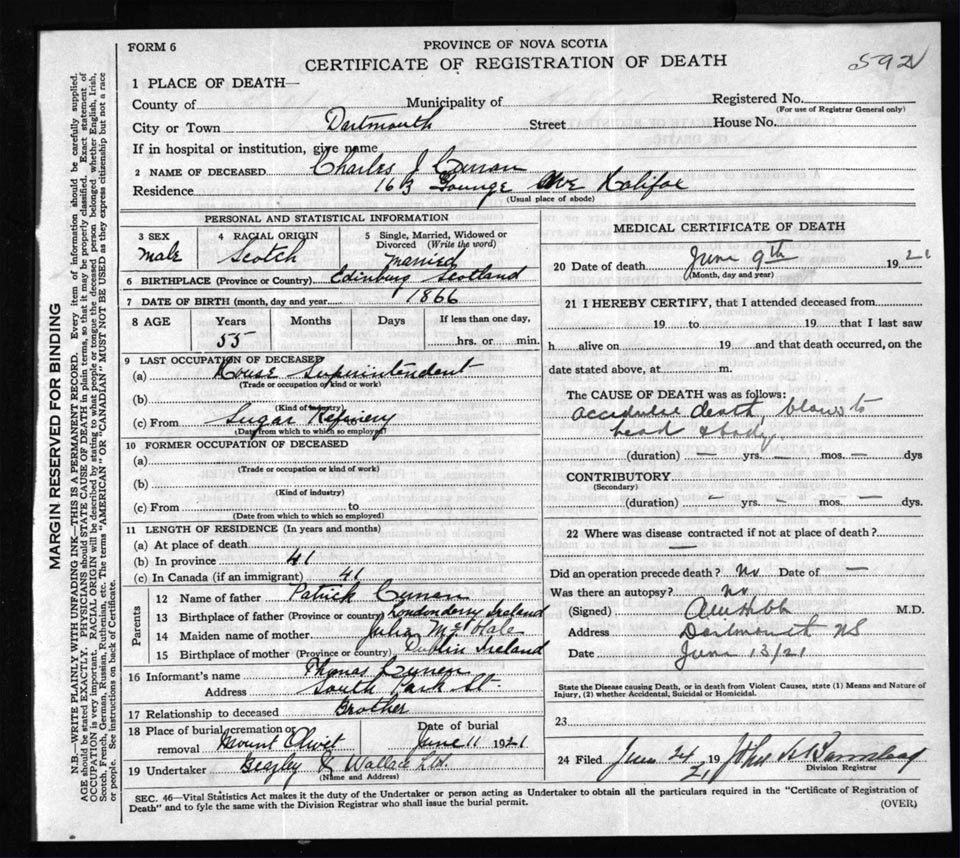 FORM 6
PROVINCE OF NOVA SCOTIA
CERTIFICATE OF REGISTRATION OF DEATH
592
1 PLACE OF DEATH—
County of Municipality of Registered No.
(For use of Registrar General only)
City or Town Dartmouth Street House No.
If in hospital or institution, give name
2 NAME OF DECEASED Charles J
Residence 163 Younge Ave Halifax
(Usual place of abode)
PERSONAL AND STATISTICAL INFORMATION
3 SEX 4 RACIAL ORIGIN 5 Single, Married, Widowed or Divorced (Write the word)
Male Scotch Married
6 BIRTHPLACE (Province or Country) Edinburg Scotland
7 DATE OF BIRTH (month, day and year) 1866
8 AGE Years Months Days If less than one day,
55 hrs. or min.
9 LAST OCCUPATION OF DECEASED
(a) House Superintendent
(Trade or occupation or kind or work)
(b)
(Kind of industry)
(c) From Sugar Refinery
(Date from which to which so employed)
10 FORMER OCCUPATION OF DECEASED
(a)
(Trade or occupation or kind of work)
(b)
(Kind of industry)
(c) From to
(Date from which to which so employed)
11 LENGTH OF RESIDENCE (In years and months)
(a) At place of death
(b) In province 41
(c) In Canada (if an immigrant) 41
Parents
12 Name of father Patrick
13 Birthplace of father (Province or country) Londonderry Ireland
14 Maiden name of mother Julia McHale
15 Birthplace of mother (Province or country) Dublin Ireland
16 Informant's name Thomas
Address South Park St.
17 Relationship to deceased Brother
18 Place of burial, cremation or removal Mount Olivet Date of burial June 11 1921
19 Undertaker Wallace
(Name and Address)
MEDICAL CERTIFICATE OF DEATH
20 Date of death June 9th 1921
(Month, day and year)
21 I HEREBY CERTIFY, that I attended deceased from
19 to 19 that I last saw
h alive on 19 and that death occurred, on the
date stated above, at m.
The CAUSE OF DEATH was as follows:
death, blows to
head & body
(duration) — yrs. — mos. — dys
CONTRIBUTORY
(Secondary)
(duration) — yrs. — mos. — dys.
22 Where was disease contracted if not at place of death?
—
Did an operation precede death? No Date of —
Was there an autopsy? No
(Signed) M.D.
Address Dartmouth NS
Date June 13/21
State the Disease causing Death, or in death from Violent Causes, state (1) Means and Nature of
Injury, (2) whether Accidental, Suicidal or Homicidal.
23
24 Filed June 24 19 21 John
Division Registrar
SEC. 46—Vital Statistics Act makes it the duty of the Undertaker or person acting as Undertaker to obtain all the particulars required in the "Certificate of Registration of
Death" and to fyle the same with the Division Registrar who shall issue the burial permit.
(OVER)
MARGIN RESERVED FOR BINDING
N.B.—WRITE PLAINLY WITH UNFADING INK—THIS IS A PERMANENT RECORD. Every item of information should be carefully supplied.
AGE should be stated EXACTLY. PHYSICIANS should STATE CAUSE OF DEATH in plain terms, so that it may be properly classified. Exact statement of
OCCUPATION is very important. RACIAL ORIGIN will be described by stating to what people or tongue the deceased person belonged whether English, Irish,
Scotch, French, German, Russian, Ruthenian, etc. The terms "AMERICAN" OR "CANADIAN" MUST NOT BE USED as they express citizenship but not a race
or people. See instructions on back of Certificate.